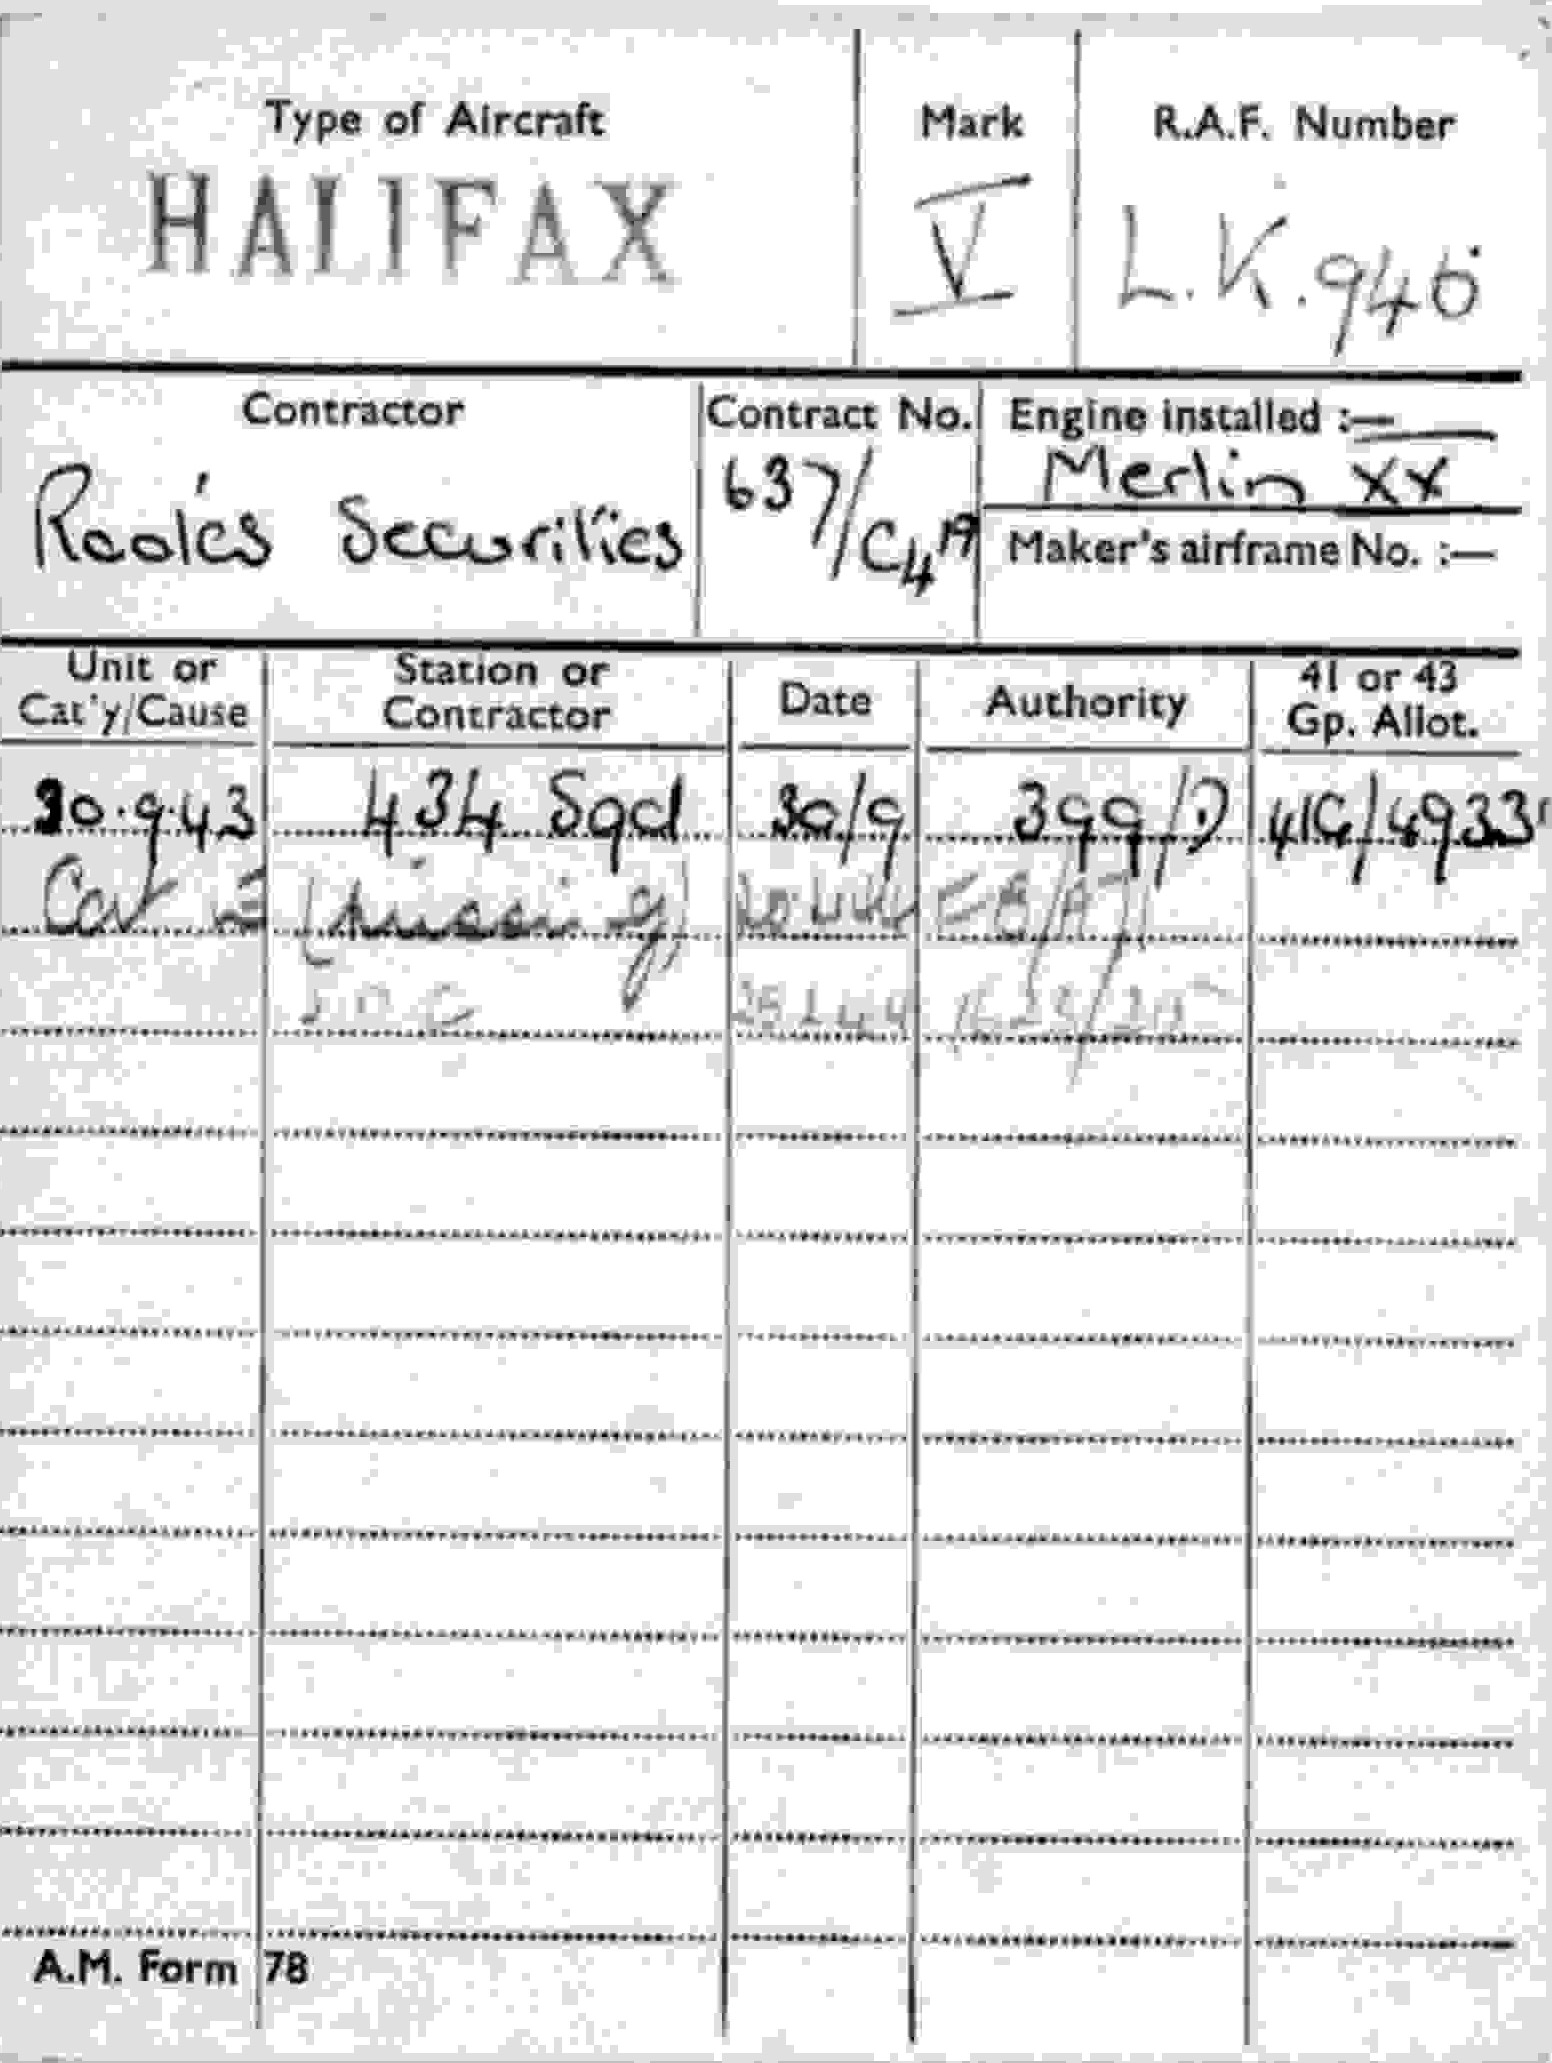 Type of Aircraft Mark R.A.F. Number
HALIFAX V L.K.946
Contractor Contract No. Engine installed :—
Rootes Securities 637/C4 19 Merlin XX
Maker's airframe No. :—
Unit or Cat'y/Cause Station or Contractor Date Authority 41 or 43 Gp. Allot.
30.9.43 434 Sqd 30/9 399/D 41G/4933
Cat E (missing)
A.M. Form 78